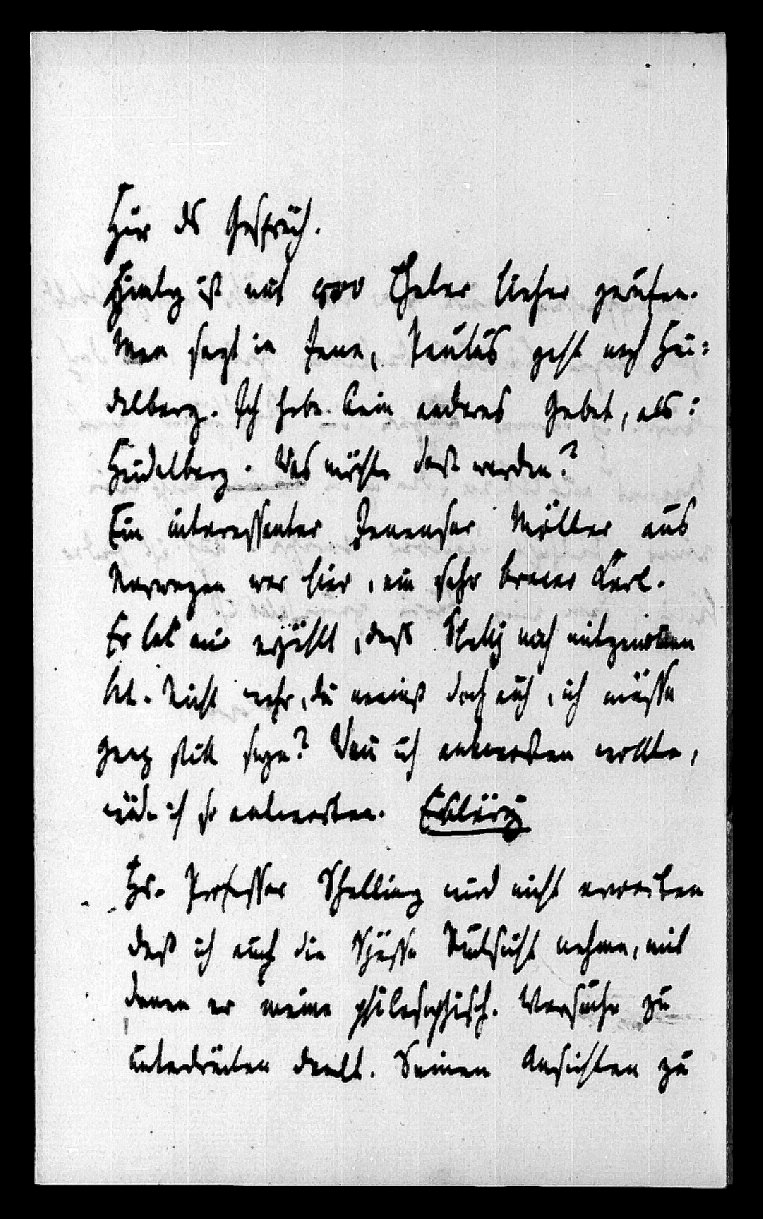 Hier das Gespräch.
ist mit 400 Thaler hieher gerufen.
Man sagt in Jena, Paulus geht nach Hei=
delberg. Ich habe kein anderes Gebet, als:
Heidelberg. Was möchte dort werden?
Ein interessanter Jenenser Möller aus
Norwegen war hier, ein sehr braver Kerl.
Er hat mir erzählt, daß noch mitgenommen
hat. Nicht wahr, du meinst doch auch, ich müsse
ganz still seyn? Wenn ich antworten wollte,
würde ich so antworten. Erklärung
Hr. Professor Schelling wird nicht erwarten
daß ich auf die Späße Rücksicht nehme, mit
denen er meine philosophisch. Versuche zu
unterdrücken denkt. Seinen Ansichten zu